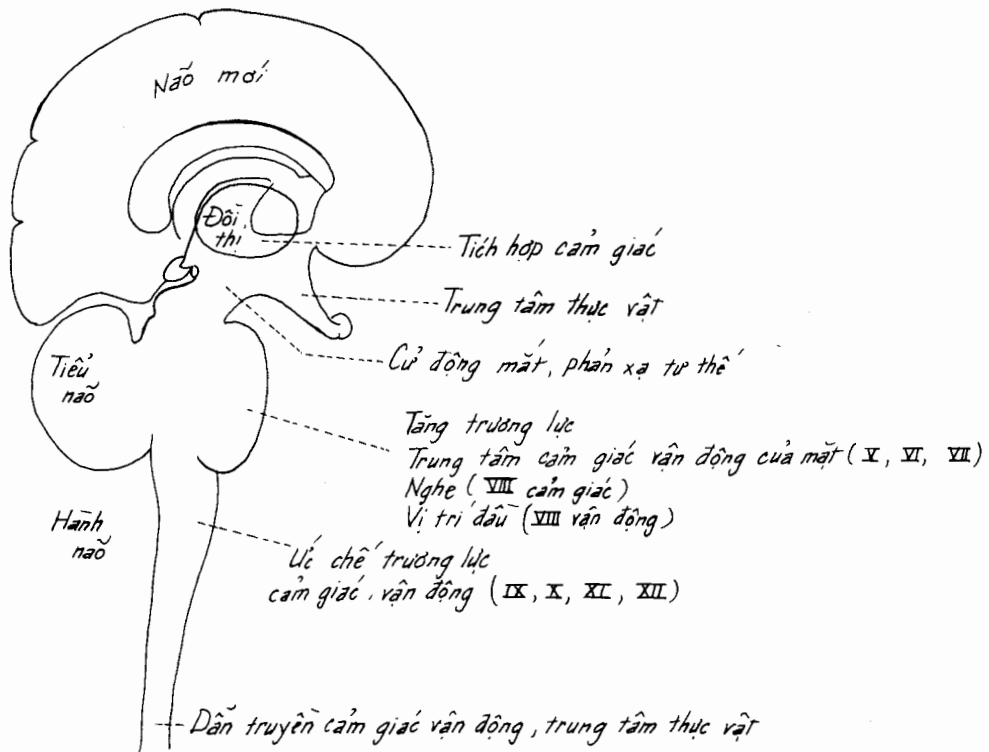 Não mới
Đồi
thị
Tích hợp cảm giác
Trung tâm thực vật
Cử động mắt, phản xạ tư thế
Tiểu
não
Tăng trương lực
Trung tâm cảm giác vận động của mặt (V, VI, VII)
Nghe (VIII cảm giác)
Vị trí đầu (VIII vận động)
Hành
não
Ức chế trương lực
cảm giác, vận động (IX, X, XI, XII)
Dẫn truyền cảm giác vận động, trung tâm thực vật